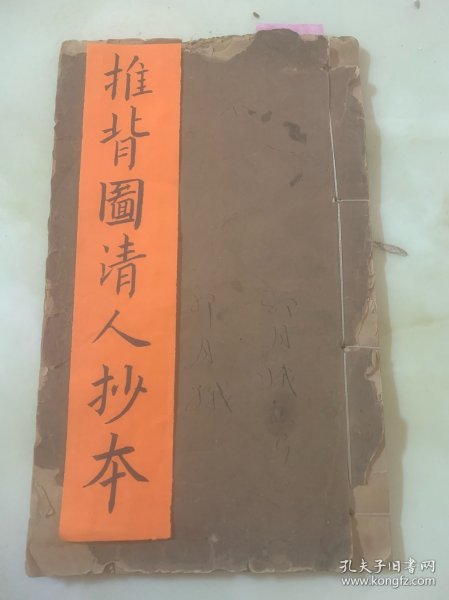 推背圖清人抄本
孔夫子旧书网
www.kongfz.com